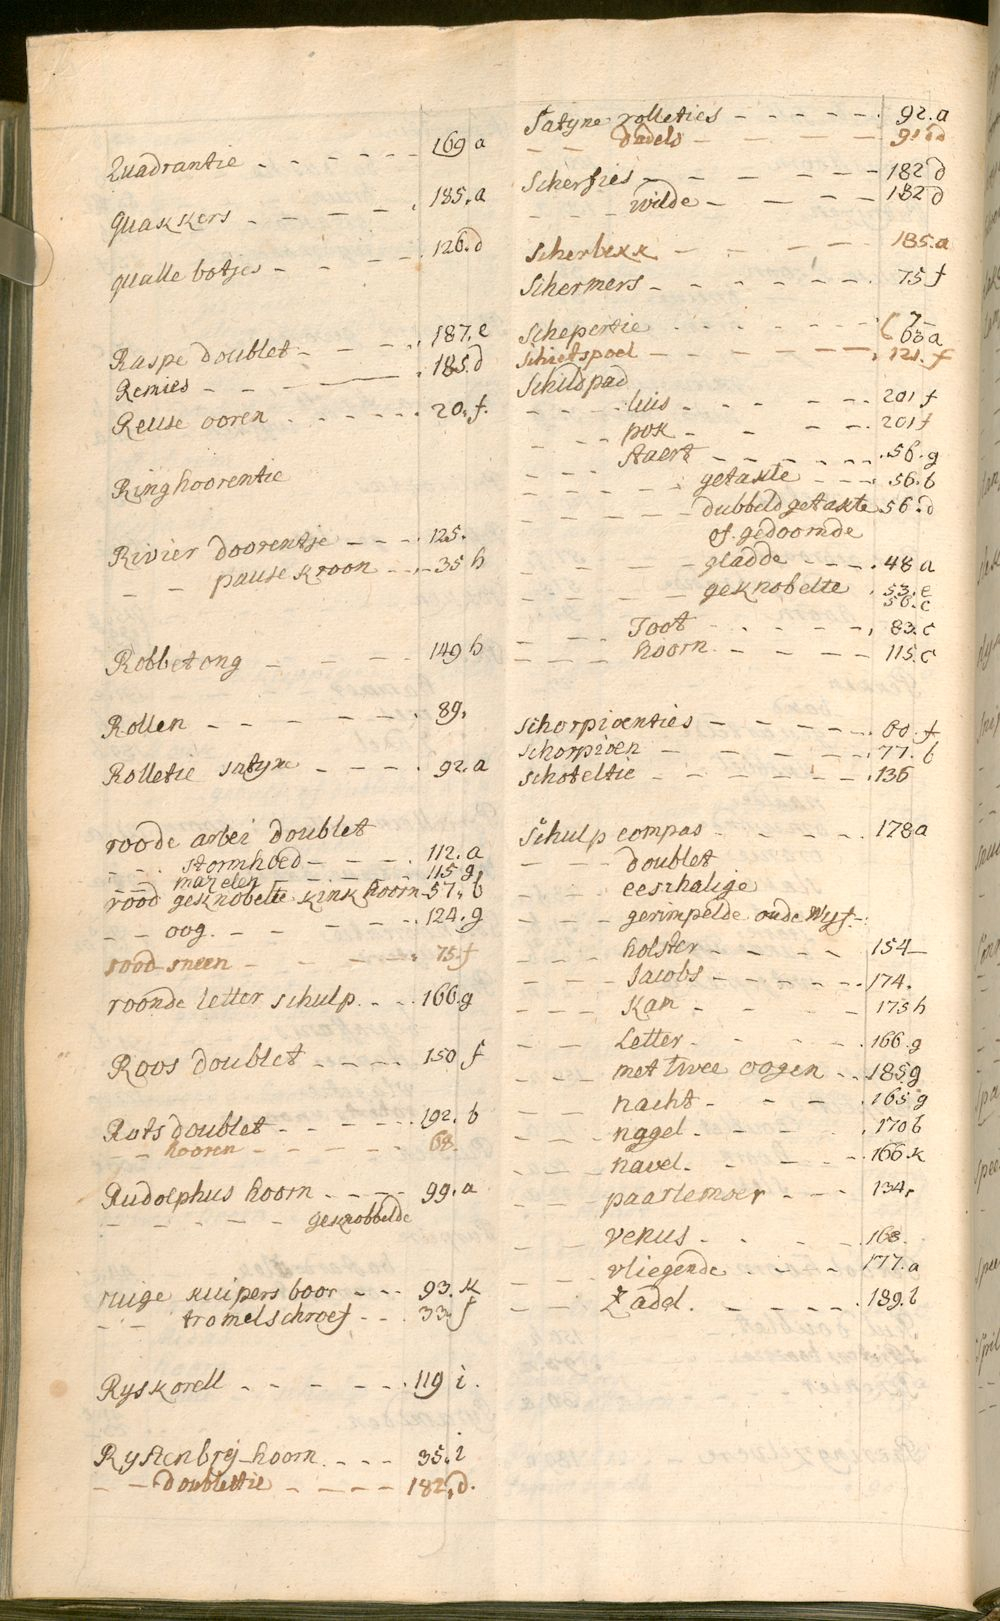 Quadrantie - - - - - - 169 a
Quakkers - - - - . 185. a
qualle botjes - - - - . 126. d
Raspe doublet - - - - . 187. e
Remies - - - . 185. d
Reuse ooren - - - - - 20. f.
Ringhoorentie
Rivier doorentje - - - - 125.
- - pause kroon - - - 35 h
Robbetong - - - - - 149 h
Rollen - - - - - - . 89.
Rolletie satyne - - - - . 92. a
roode arbei doublet
- - . stormhoed - - - - . 112. a
- - - mazelen - - - - - - 115 g
rood geknobelte kinkhoorn - 57. b
- - oog. - - - - - - 124. g
rood sneen - - - - . 75. f
roonde letter schulp. - - . 166. g
Roos doublet - - - - - 150 f
Rots doublet - - - - - . 192. b
- - hooren - - - - - 68.
Rudolphus hoorn - - - - 99. a
- - - - - - geknobbelde
ruige kuipers boor - - - 93. k
- - tromelschroef - - . 33 f
Ryskorell - - - - - - . 119 i.
Rystenbrij-hoorn. - - - - 35. i
- - doublettie - - - - 182. d.
Satyne rolleties - - - - - . 92. a
- - dadels - - - - 91. d
Scherfies - - - - - - 182 d
- - - wilde - - - - 182 d
Scherbekk - - - - 185. a
Schermers - - - - - - . 75 f
Schepertie - - - - - - ( 7-
60 a
Schietspoel - - - - - . 121. f
Schildpad
- - - - luis - - - - - - 201 f
- - - pok - - - - 201 f
- - - staert - - - - - - . 56. g
- - - - getakte - - - . 56. b
- - - - - dubbeld getakte 56. d
of gedoornde
- - - - - gladde - - - - . 48 a
- - - - - geknobelte . 53. e
56. c
- - - Toot - - - - - , 83. c
- - - - hoorn - - - - - 115. c
Schorpioenties - - - - - . 60. f
Schorpioen - - - - - . 77. b
Schoteltie - - - - - - . 136
Schulp compas - - - - - . 178 a
- - - doublet
- - - eeschalige
- - - gerimpelde oude Wyf -
- - - holster - - - - 154 -
- - - Jacobs - - - - - . 174.
- - - Kam - - - - - 175 h
- - Letter - - - - - - 166. g
- - met twee oogen - - . 185 g
- - nacht - - - - . 165 g
- - nagel - - - - - . 170 b
- - navel. - - - - - 166. k
- - paarlemoer - - - 134.
- - venus - - - - . 168.
- - vliegende - - - . 177. a
- - Zadel. - - - - - . 189. b